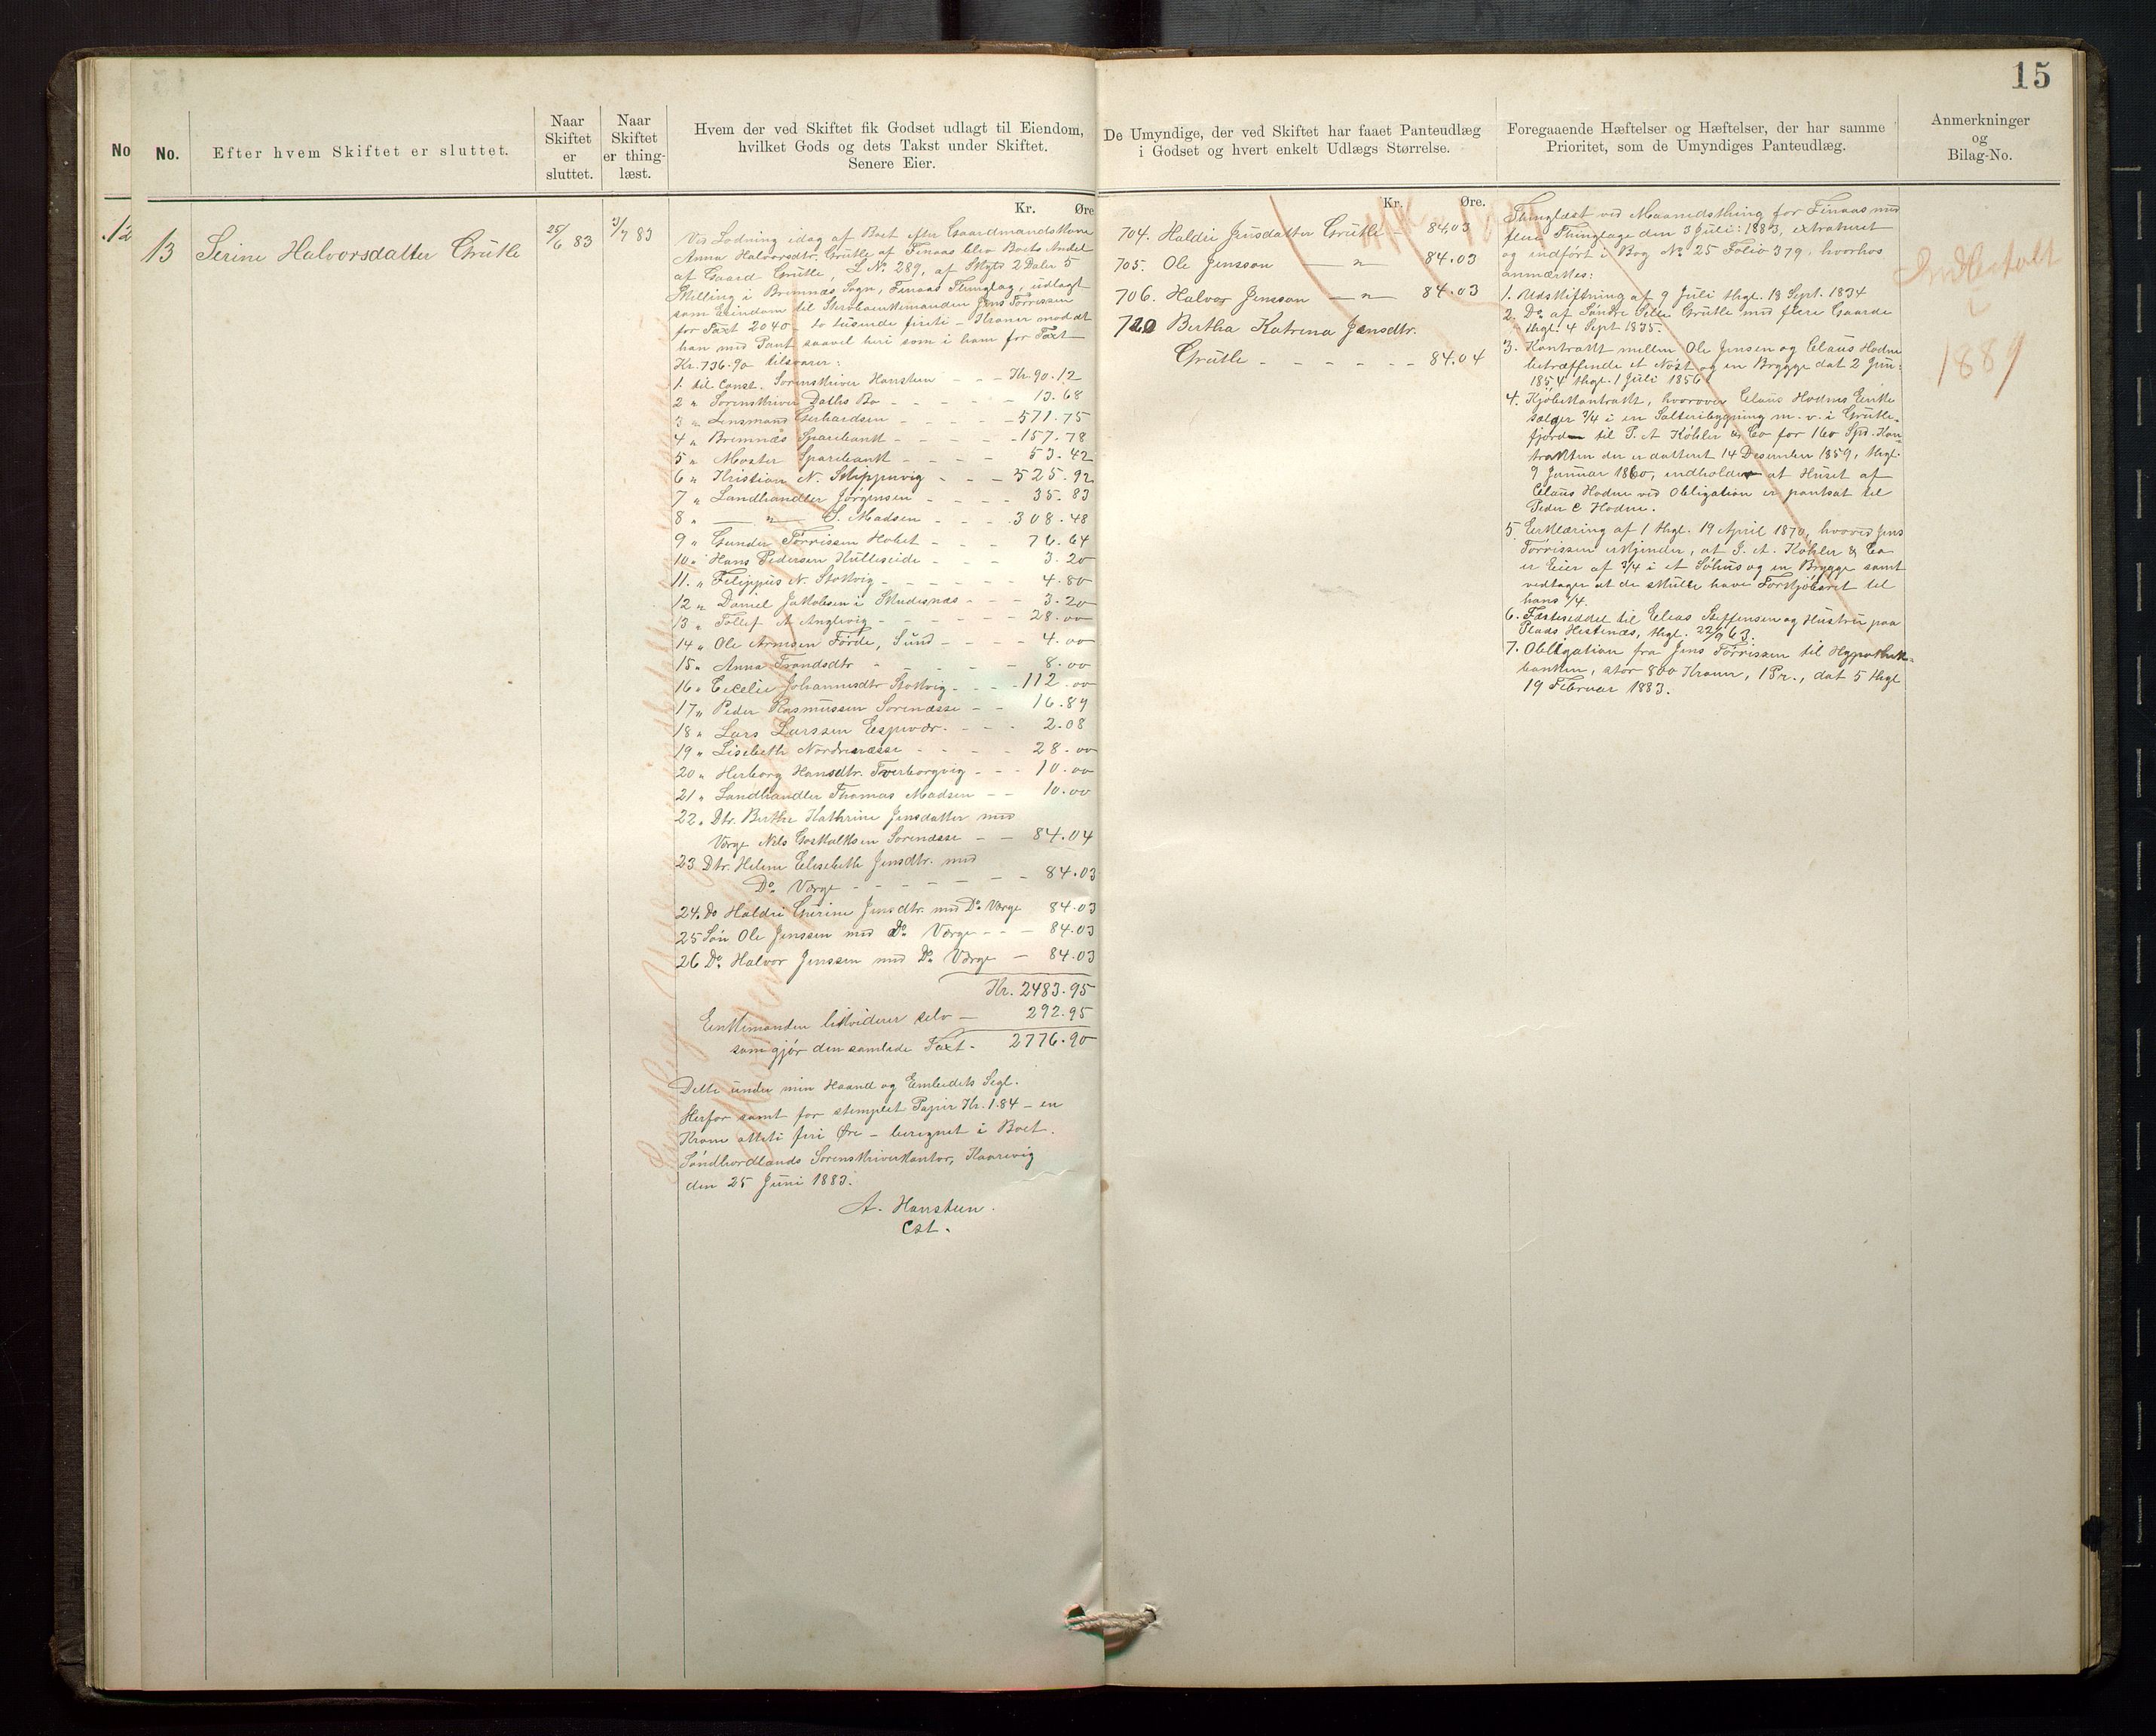 15
No
No.
Efter hvem Skiftet er sluttet.
Naar
Skiftet
er
sluttet.
Naar
Skiftet
er thing-
læst.
Hvem der ved Skiftet fik Godset udlagt til Eiendom,
hvilket Gods og dets Takst under Skiftet.
Senere Eier.
De Umyndige, der ved Skiftet har faaet Panteudlæg
i Godset og hvert enkelt Udlægs Størrelse.
Foregaaende Hæftelser og Hæftelser, der har samme
Prioritet, som de Umyndiges Panteudlæg.
Anmerkninger
og
Bilag-No.
12
13
Serine Halvorsdatter Grutle
25/6 83
3/7 83
Kr. Øre
Ved Lodning idag af Boet efter Gaardmandskone
Anna Halvorsdtr. Grutle af Finaas blev Boets Andel
af Gaard Grutle, L. No. 289, af Skyld 2 Daler 5
Skilling i Bremnæs Sogn, Finaas Thinglag, udlagt
som Eiendom til Stervboenkemanden Jens Torrissen
for Taxt 2040 – to tusende firti – Kroner mod at
han med Pant saavel heri som i ham for Taxt
Kr. 736.90 tilsvarer:
1. til Const. Sorenskriver Hansteen - - Kr. 90.12
2 " Sorenskriver Dahls Bo - - 13.68
3 " Lensmand Gerhardsen - - 571.75
4 " Bremnæs Sparebank - - 157.78
5 " Moster Sparebank - - 53.42
6 " Kristian N. Skippervig - - 525.92
7 " Landhandler Jørgensen - - 35.83
8 " — " — S. Madsen - - 308.48
9 " Gunder Torrissen Hovet - - 76.64
10 " Hans Pedersen Hulleseide - - 3.20
11. " Filippus N. Stokvig - - 4.80
12 " Daniel Jakobsen i Skudesnæs - - 3.20
13 " Tollef A Anglevig - - 28.00
14 " Ole Arnesen Førde, Sund - - 4.00
15 " Anna Trondsdtr - - 8.00
16 " Cecelie Johannesdtr Stokvig - - 112.00
17 " Peder Rasmussen Sorenæsse - - 16.89
18 " Lars Larssen Espevær. - - 2.08
19 " Lisebeth Nordrenæsse - - 28.00
20 " Herborg Hansdtr. Tverborgvig - - 10.00
21 " Landhandler Thomas Madsen - - 10.00
22 " Dtr. Berthe Kathrine Jensdatter med
Værge Nels Goskalksen Sorenæsse - - 84.04
23 Dtr. Helene Elisebeth Jensdtr. med
Do. Værge - - 84.03
24. Do Haldri Gurine Jensdtr. med Do. Værge 84.03
25 Søn Ole Jenssen med Do. Værge - - 84.03
26 Do. Halvor Jenssen med Do. Værge - 84.03
Kr. 2483.95
Enkemanden likviderer selv — 292.95
som gjør den samlede Taxt - 2776.90
Dette under min Haand og Embedets Segl.
Herfor samt for stemplet Papir Kr. 1.84 – en
Krone otteti fire Øre – beregnet i Boet.
Søndhordlands Sorenskriverkontor, Kaarevig
den 25 Juni 1883.
A. Hansteen.
Cst.
Kr. Øre.
704. Haldri Jensdatter Grutle - 84.03
705. Ole Jensson — " — 84.03
706. Halvor Jensson — " — 84.03
720 Bertha Katrina Jensdtr.
Grutle - - - - - - 84.04
Thinglæst ved Maanedsthing for Finaas med
flere Thinglage den 3 Juli 1883, extraheret
og indført i Bog No. 25 Folio 379, hvorhos
anmærkes:
1. Udskiftning af 9 Juli thgl. 18 Sept. 1834
2. Do. af Søndre Selle Grutle med flere Gaarde
thgl. 4 Sept 1835.
3. Kontrakt mellem Ole Jensen og Claus Hodne
betræffende et Nøst og en Brygge dat 2 Juni
1854 thgl. 1 Juli 1856
4. Kjøbekontrakt, hvorover Claus Hodnes Enke
sælger 3/4 i en Salteribygning m. v. i Grutle-
fjorden til P. A Køhler & Co for 160 Spd. Kon-
trakten der er dateret 14 Desember 1859, thgl.
9 Januar 1860, indholder at Huset af
Claus Hodne ved Obligation er pantsat til
Peder C Hodne.
5. Erklæring af 1 thgl. 19 April 1870, hvorved Jens
Torrissen erkjender, at P. A. Køhler & Co
er Eier af 3/4 i et Søhus og en Brygge samt
vedtager at de skulle have Forkjøbsret til
hans 1/4.
6. Fæsteseddel til Elias Steffensen og Hustru paa
Plads Hestenæs, thgl. 22/9 63.
7. Obligation fra Jens Torrissen til Hypothek-
banken, stor 800 Kroner, 1 Pr., dat 5 thgl
19 Februar 1883.
Indbetalt
1889